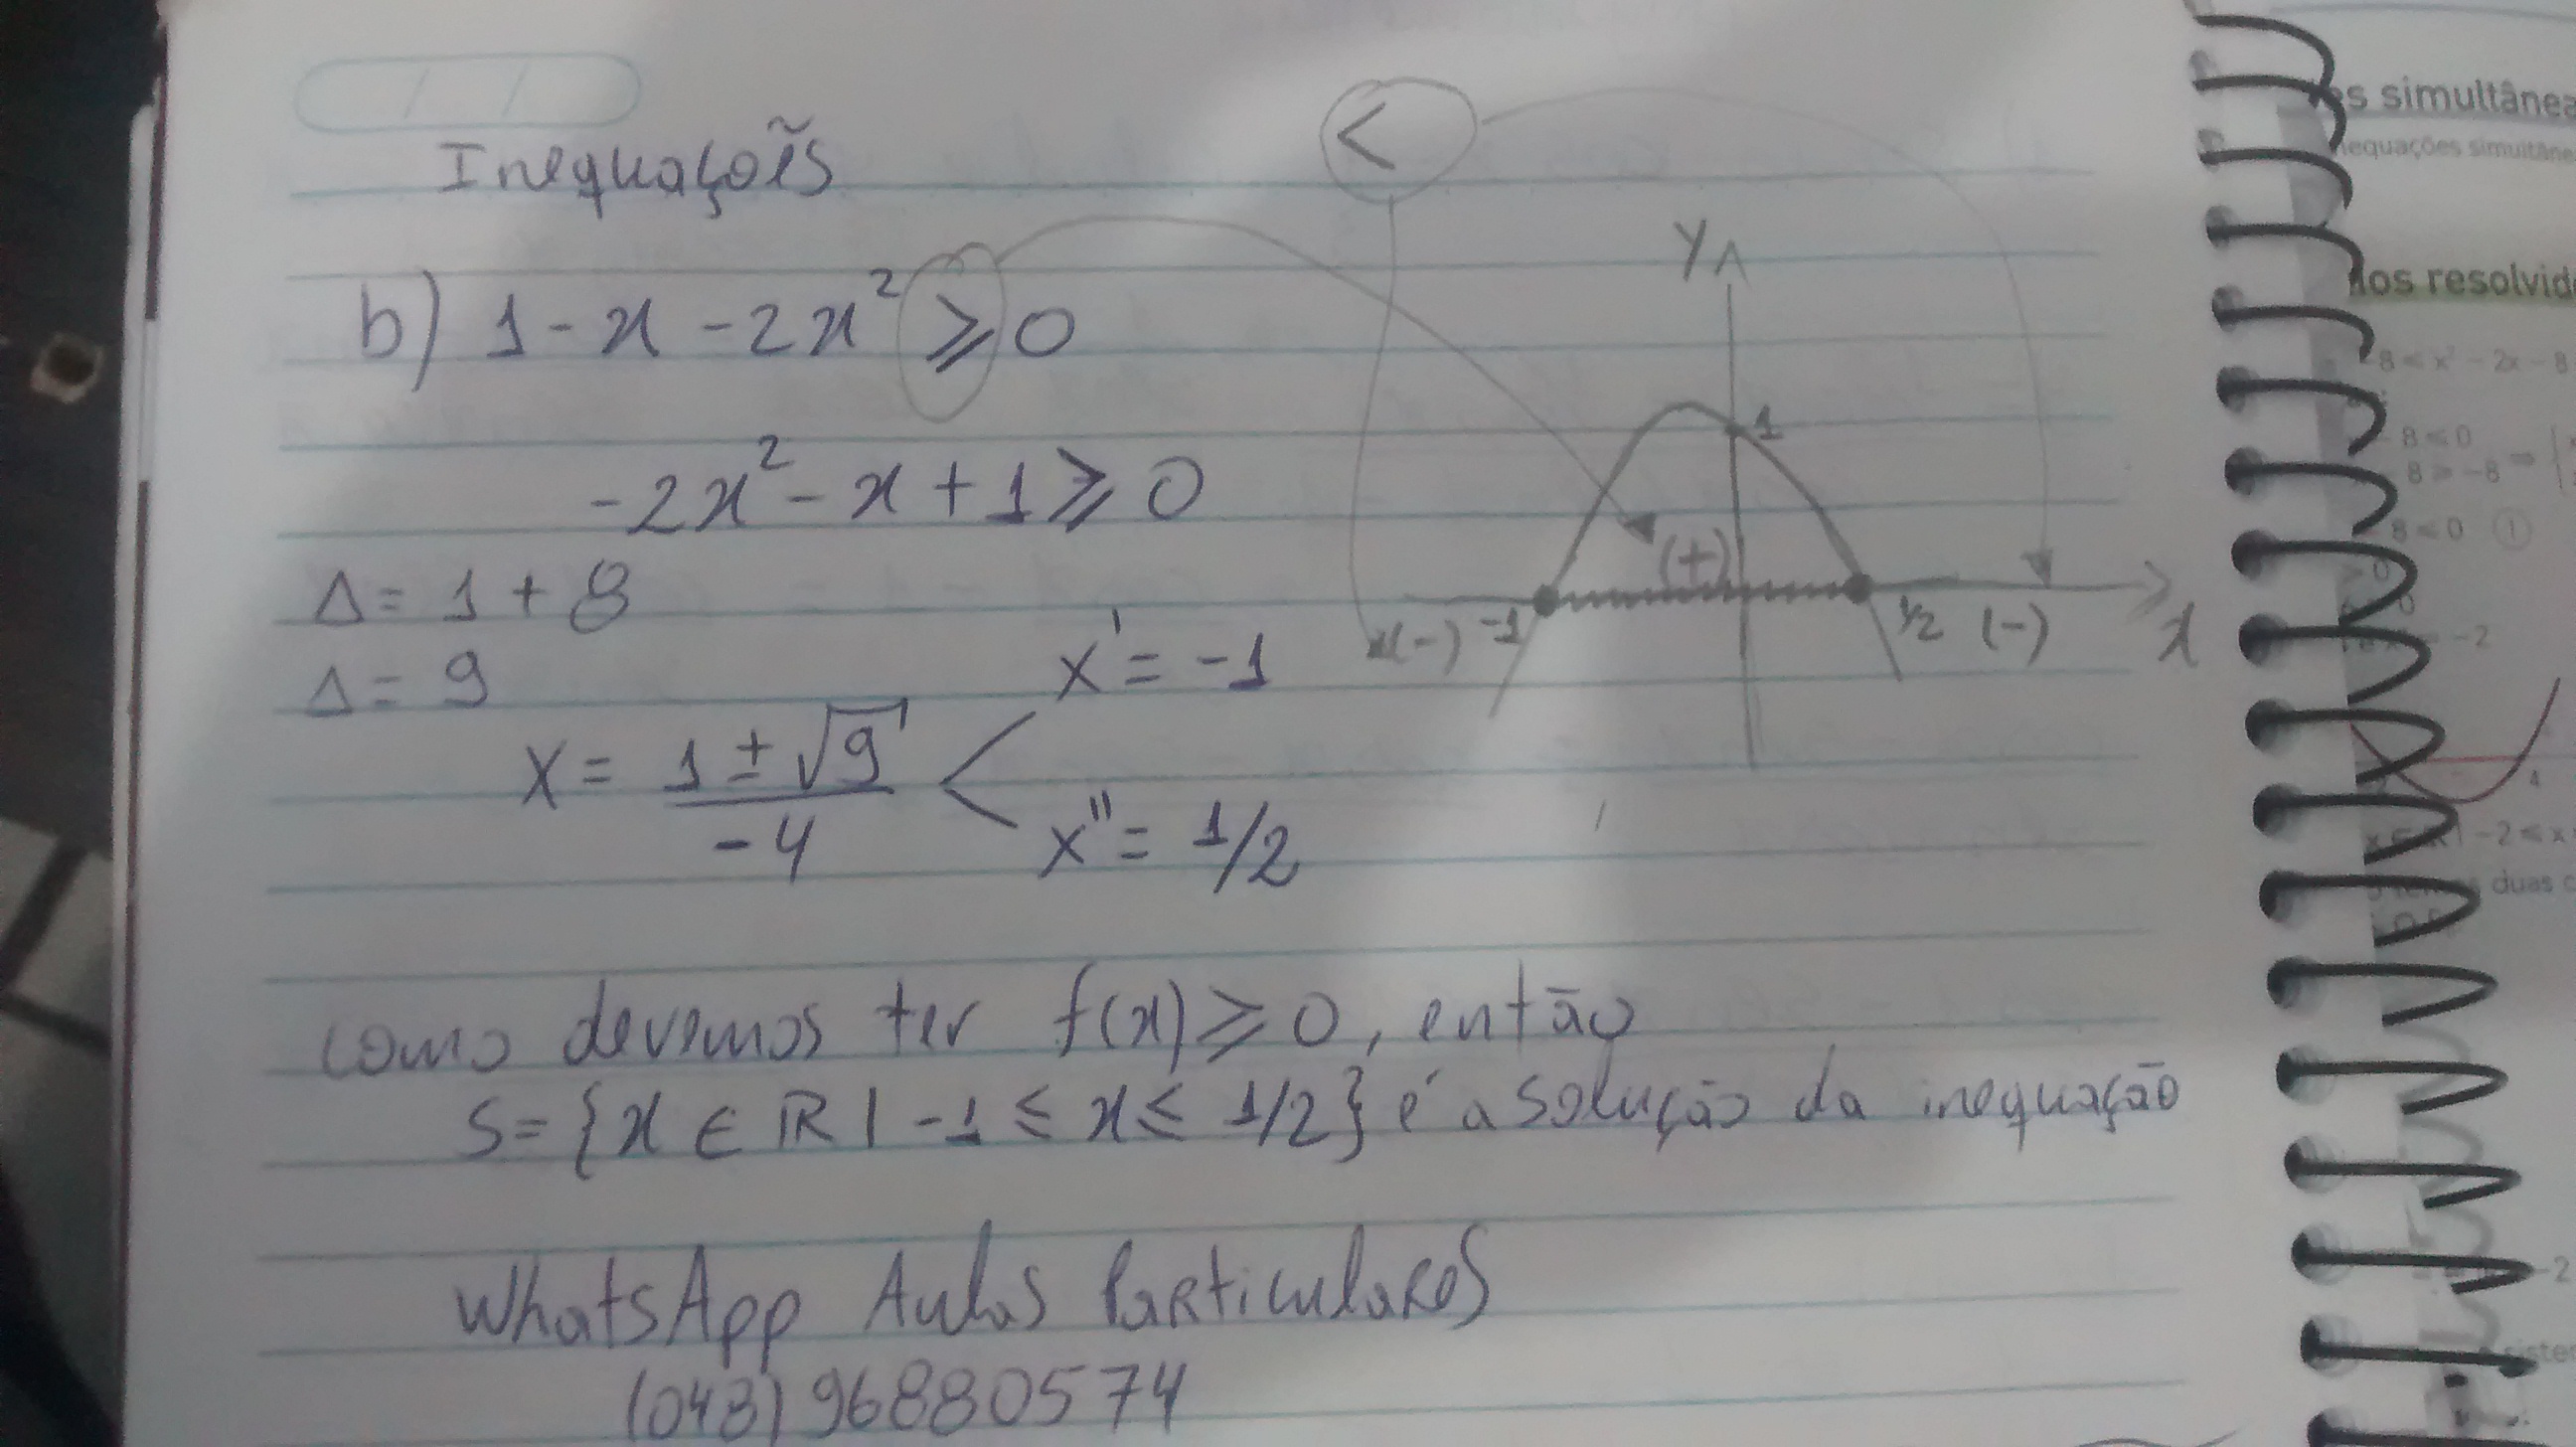 Inequações
b) 1 - x - 2x² ≥ 0
-2x² - x + 1 ≥ 0
Δ = 1 + 8
Δ = 9
x = (1 ± √9) / -4
x' = -1
x'' = 1/2
<
y
1
(+)
(-) -1
1/2 (-)
x
como devemos ter f(x) ≥ 0, então
S = {x ∈ ℝ | -1 ≤ x ≤ 1/2} é a solução da inequação
WhatsApp Aulas Particulares
(048) 96880574
simultânea
inequações simultâne
dos resolvid
8 < x² - 2x - 8
8 ≤ 0
8 ≥ -8 ⇒
8 ≤ 0 ①
-2
4
-2 ≤ x
duas c
-2